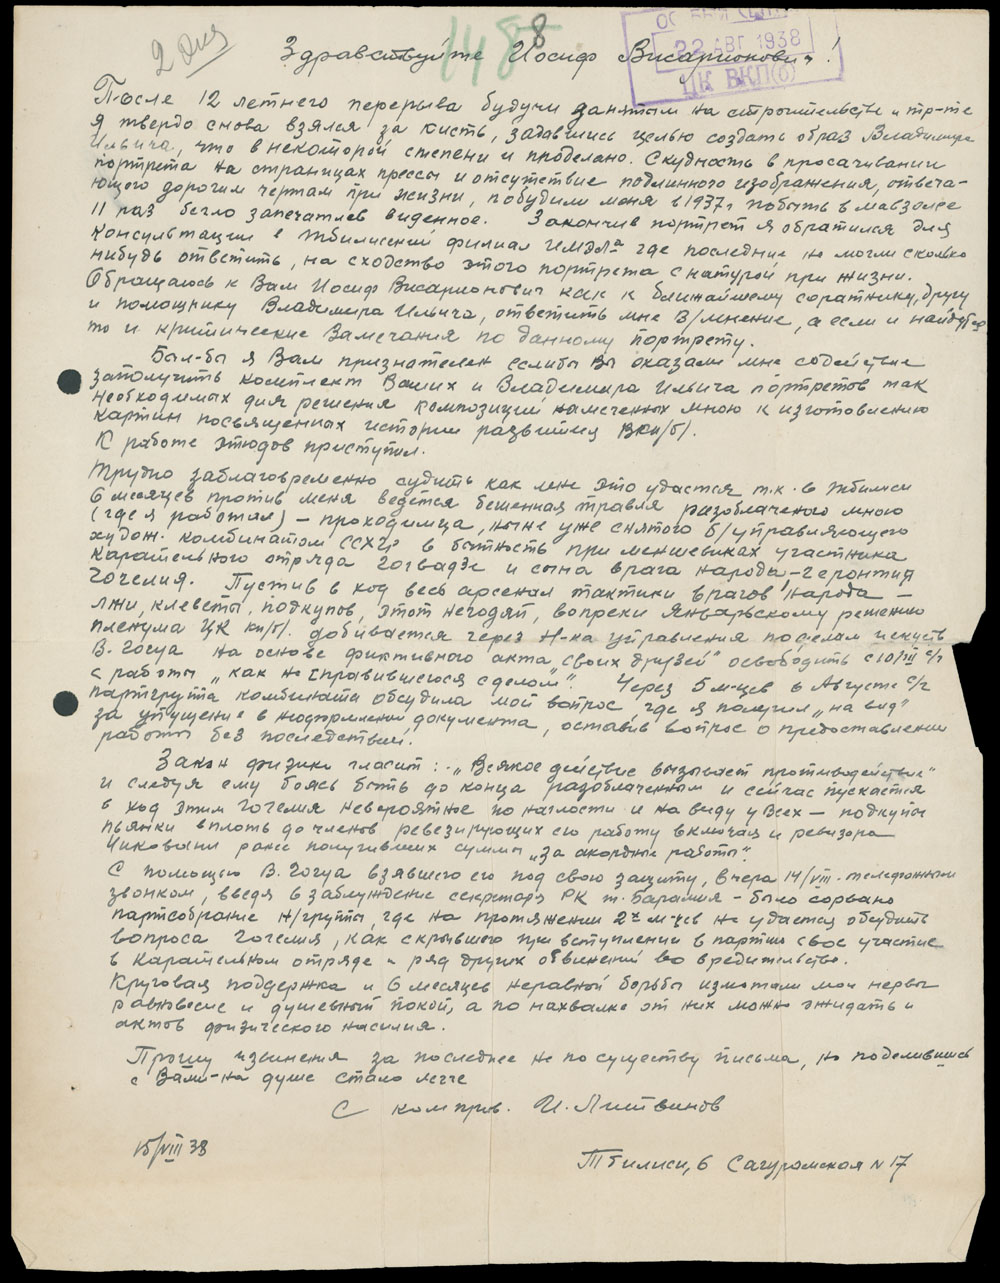 2 экз
1488
ОСОБЫЙ СЕКТОР
22 АВГ 1938
ЦК ВКП(б)
Здравствуйте Иосиф Висарионович!
После 12 летнего перерыва будучи занятым на строительстве и тр-те
я твердо снова взялся за кисть, задавшись целью создать образ Владимира
Ильича, что в некоторой степени и проделано. Скудность в просачивании
портрета на страницах прессы и отсутствие подлинного изображения, отвеча-
ющего дорогим чертам при жизни, побудили меня в 1937г побыть в мавзолее
11 раз бегло запечатлев виденное. Закончив портрет я обратился для
консультации в Тбилисский филиал ИМЭЛа где последние не могли сколько
нибудь ответить, на сходство этого портрета с натурой при жизни.
Обращаюсь к Вам Иосиф Висарионович как к ближайшему соратнику, другу
и помощнику Владимира Ильича, ответить мне В/мнение, а если и найдутся
то и критические замечания по данному портрету.
Был-бы я Вам признателен еслибы Вы оказали мне содействие
заполучить комплект Ваших и Владимира Ильича портретов так
необходимых для решения композиций намеченных мною к изготовлению
картин посвященных истории развития ВКП/б/.
К работе этюдов приступил.
Трудно заблаговременно судить как мне это удастся т.к. в Тбилиси
6 месяцев против меня ведется бешенная травля разоблаченого мною
(где я работал) – проходимца, ныне уже снятого б/управляющего
худож. комбинатом ССХГ, в бытность при меньшевиках участника
карательного отряда Гогвадзе и сына врага народа, – Геронтия
Гогелия. Пустив в ход весь арсенал тактики врагов народа –
лжи, клеветы, подкупов, этот негодяй, вопреки Январьскому решению
пленума ЦК кп/б/. добивается через Н-ка управления по делам искуств
В. Гогуа на основе фиктивного акта „своих друзей" освободить с 10/III с/г
с работы „как не справившегося с делом". Через 5 м-цев в Августе с/г
партгруппа комбината обсудила мой вопрос, где я получил „на вид"
за упущение в неоформлении документа, оставив вопрос о предоставлении
работы без последствий.
Закон физики гласит: „Всякое действие вызывает противодействие"
и следуя ему боясь быть до конца разоблаченным и сейчас пускается
в ход этим Гогелия невероятное по наглости и на виду у всех – подкупы
пьянки вплоть до членов ревезирующих его работу включая и ревизора
Чиковани ранее получивших суммы „за акордные работы".
С помощью В. Гогуа взявшего его под свою защиту, вчера 14/VIII. телефонным
звонком, введя в заблуждение секретаря РК т. Барамия – было сорвано
партсобрание н/группы, где на протяжении 2х м-цев не удается обсудить
вопроса Гогелия, как скрывшего при вступлении в партию свое участие
в карательном отряде и ряд других обвинений во вредительстве.
Круговая поддержка и 6 месяцев неравной борьбы измотали мои нервы
равновесие и душевный покой, а по нахвалке от них можно ожидать и
актов физического насилия.
Прошу извинения за последнее не по существу письма, но поделившись
с Вами – на душе стало легче
С комприв. И. Литвинов
15/VIII 38
Тбилиси, 6 Сагурамская N 17